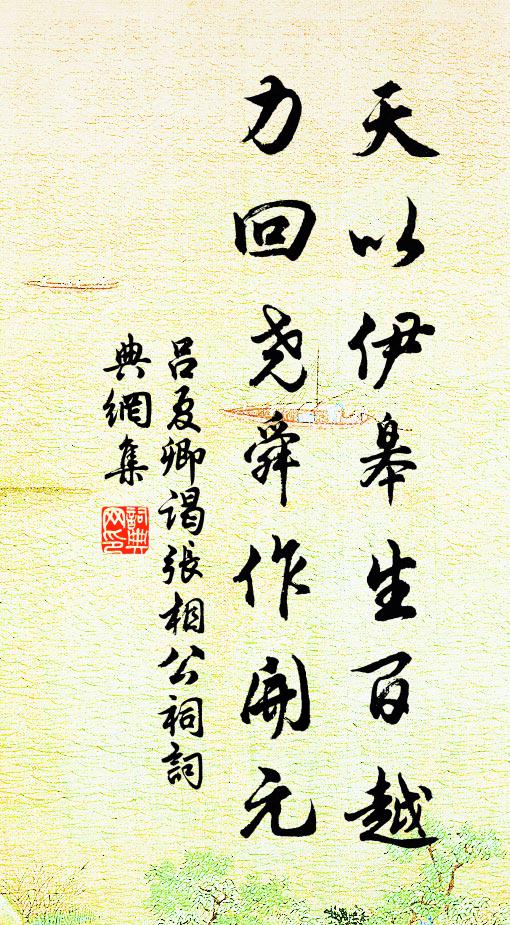 天以伊皋生百越
力回尧舜作開元
吕夏卿谒張相公祠詞
典網集
詞典網印